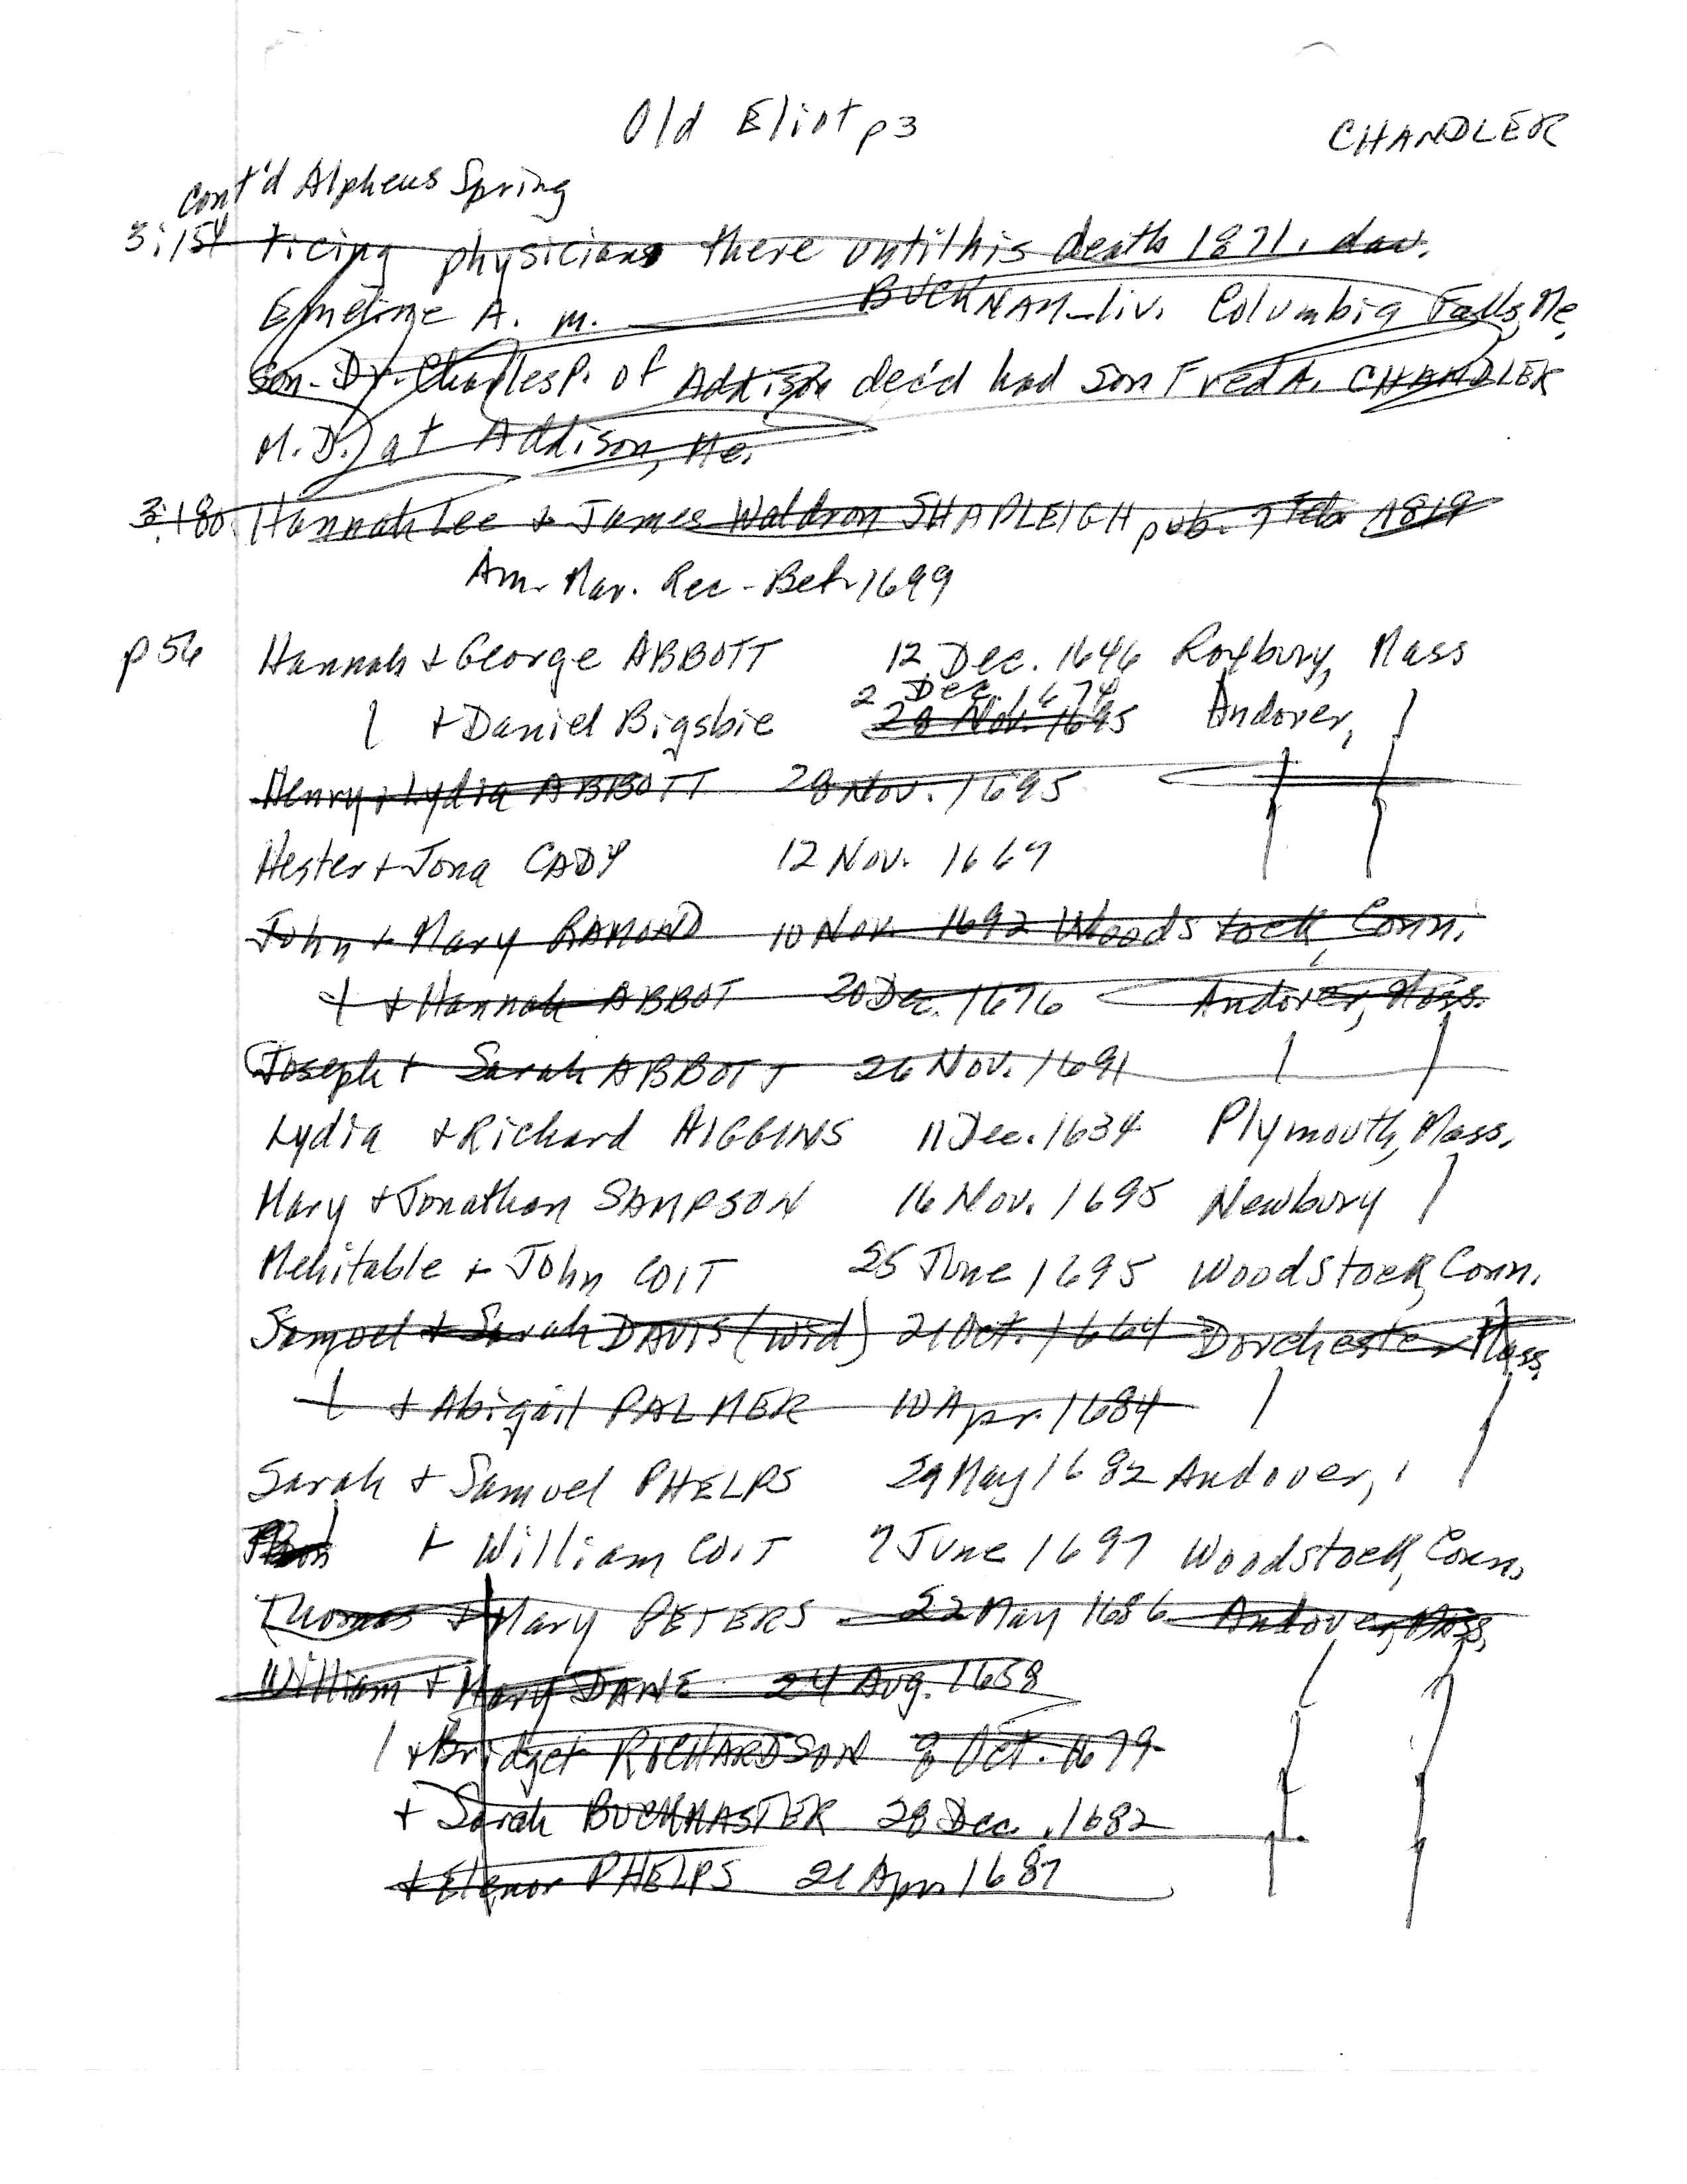 Old Eliot p3
CHANDLER
cont'd Alpheus Spring
3:154 ticing physicians there until his death 1871. dau.
Emeline A. m. BUCKNAM-liv. Columbia Falls, Me.
son-Dr. Charles P. of Addison dec'd had son Fred A. CHANDLER
M.D.) at Addison, Me.
3:180 Hannah Lee + James Waldron SHAPLEIGH pub. 7 Feb 1819
Am. Mar. Rec-Bef. 1699
p 56 Hannah + George ABBOTT 12 Dec. 1646 Roxbury, Mass
2 Dec. 1674
| + Daniel Bigsbie 28 Nov. 1695 Andover, |
Henry + Lydia ABBOTT 28 Nov. 1695 | |
Hester + Jona CADY 12 Nov. 1667 | |
John + Mary RAMOND 10 Nov. 1692 Woodstock, Conn.
| + Hannah ABBOT 20 Dec. 1676 Andover, Mass.
Joseph + Sarah ABBOTT 26 Nov. 1691 | |
Lydia + Richard HIGGINS 11 Dec. 1634 Plymouth, Mass.
Mary + Jonathan SAMPSON 16 Nov. 1695 Newbury |
Mehitable + John COIT 25 June 1695 Woodstock, Conn.
Samuel + Sarah DAVIS (wid) 21 Oct. 1664 Dorchester Mass
| + Abigail PALMER 10 Apr. 1684 | |
Sarah + Samuel PHELPS 29 May 1682 Andover, |
+ William COIT 7 June 1697 Woodstock, Conn.
Thomas + Mary PETERS 22 May 1686 Andover, Mass,
William + Mary DANE 24 Aug. 1658 | |
| + Bridget RICHARDSON 8 Oct. 1679 | |
+ Sarah BUCKMASTER 28 Dec. 1682 | |
+ Elenor PHELPS 21 Apr 1687 | |